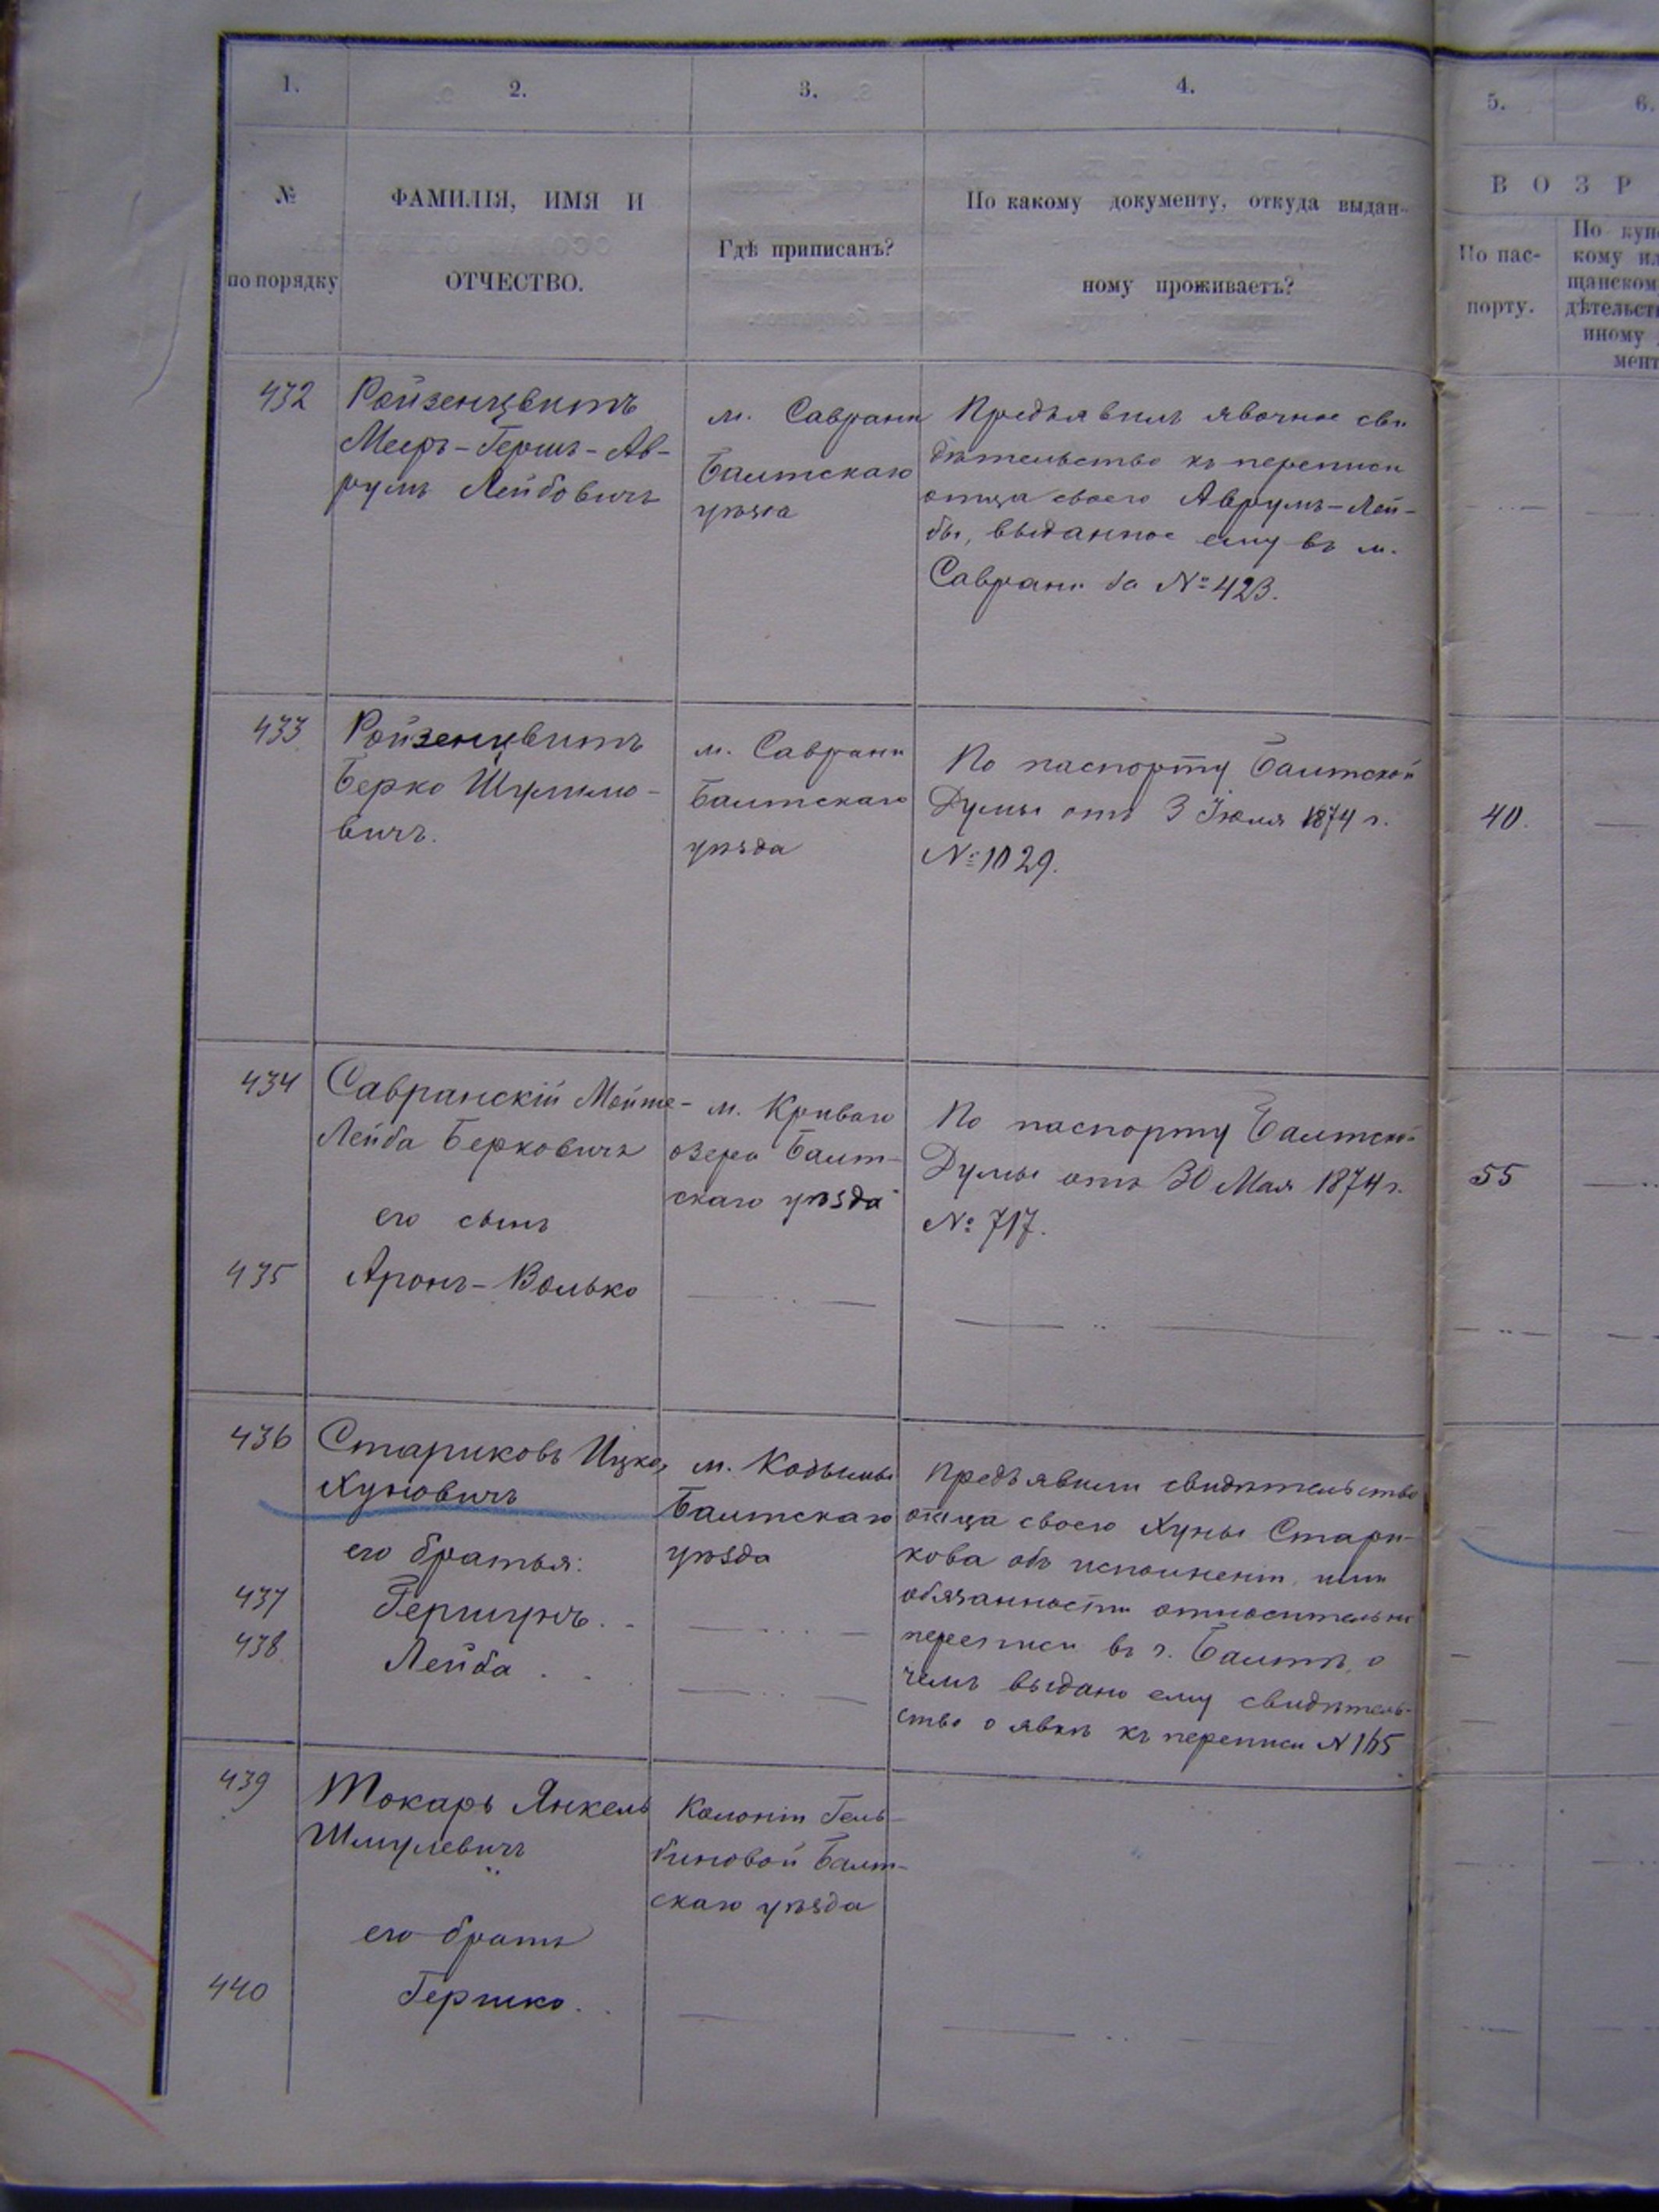 1. 2. 3. 4. 5. 6.
№
по порядку
ФАМИЛІЯ, ИМЯ И
ОТЧЕСТВО.
Гдѣ приписанъ?
По какому документу, откуда выдан-
ному проживаетъ?
ВОЗР
По пас-
порту.
По куп
кому ил
щанском
дѣтельст
иному
мент
432
Ройзенцвитъ
Мееръ-Гершъ-Ав-
румъ Лейбовичъ
м. Саврани
Балтскаго
уѣзда
Предъявилъ явочное сви
дѣтельство къ переписи
отца своего Аврумъ-Лей-
бы, выданное ему въ м.
Саврани за №423.
433
Ройзенцвитъ
Берко Шулимо-
вичъ.
м. Саврани
Балтскаго
уѣзда
По паспорту Балтской
Думы отъ 3 Іюля 1874 г.
№1029.
40.
434
Савранскій Мойше-
Лейба Берковичъ
его сынъ
м. Криваго
озера Балт-
скаго уѣзда
По паспорту Балтской
Думы отъ 30 Мая 1874 г.
№ 717.
55
435
Аронъ-Волько
436
Стариковъ Ицко,
Хуновичъ
его братья:
м.
Балтскаго
уѣзда
Предъявили свидѣтельство
отца своего Хуны Стари-
кова объ исполненіи ими
обязанности относительно
переписи въ г. Балтѣ, о
чемъ выдано ему свидѣтель-
ство о явкѣ къ переписи №165
437
Гершунъ.
438
Лейба
439
Токарь Янкель
Шмулевичъ
его братъ
Колоніи Гель-
биновой Балт-
скаго уѣзда
440
Гершко.